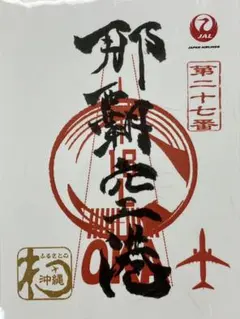 那覇空港
JAL
JAPAN AIRLINES
第二十七番
ふるさとの
沖縄